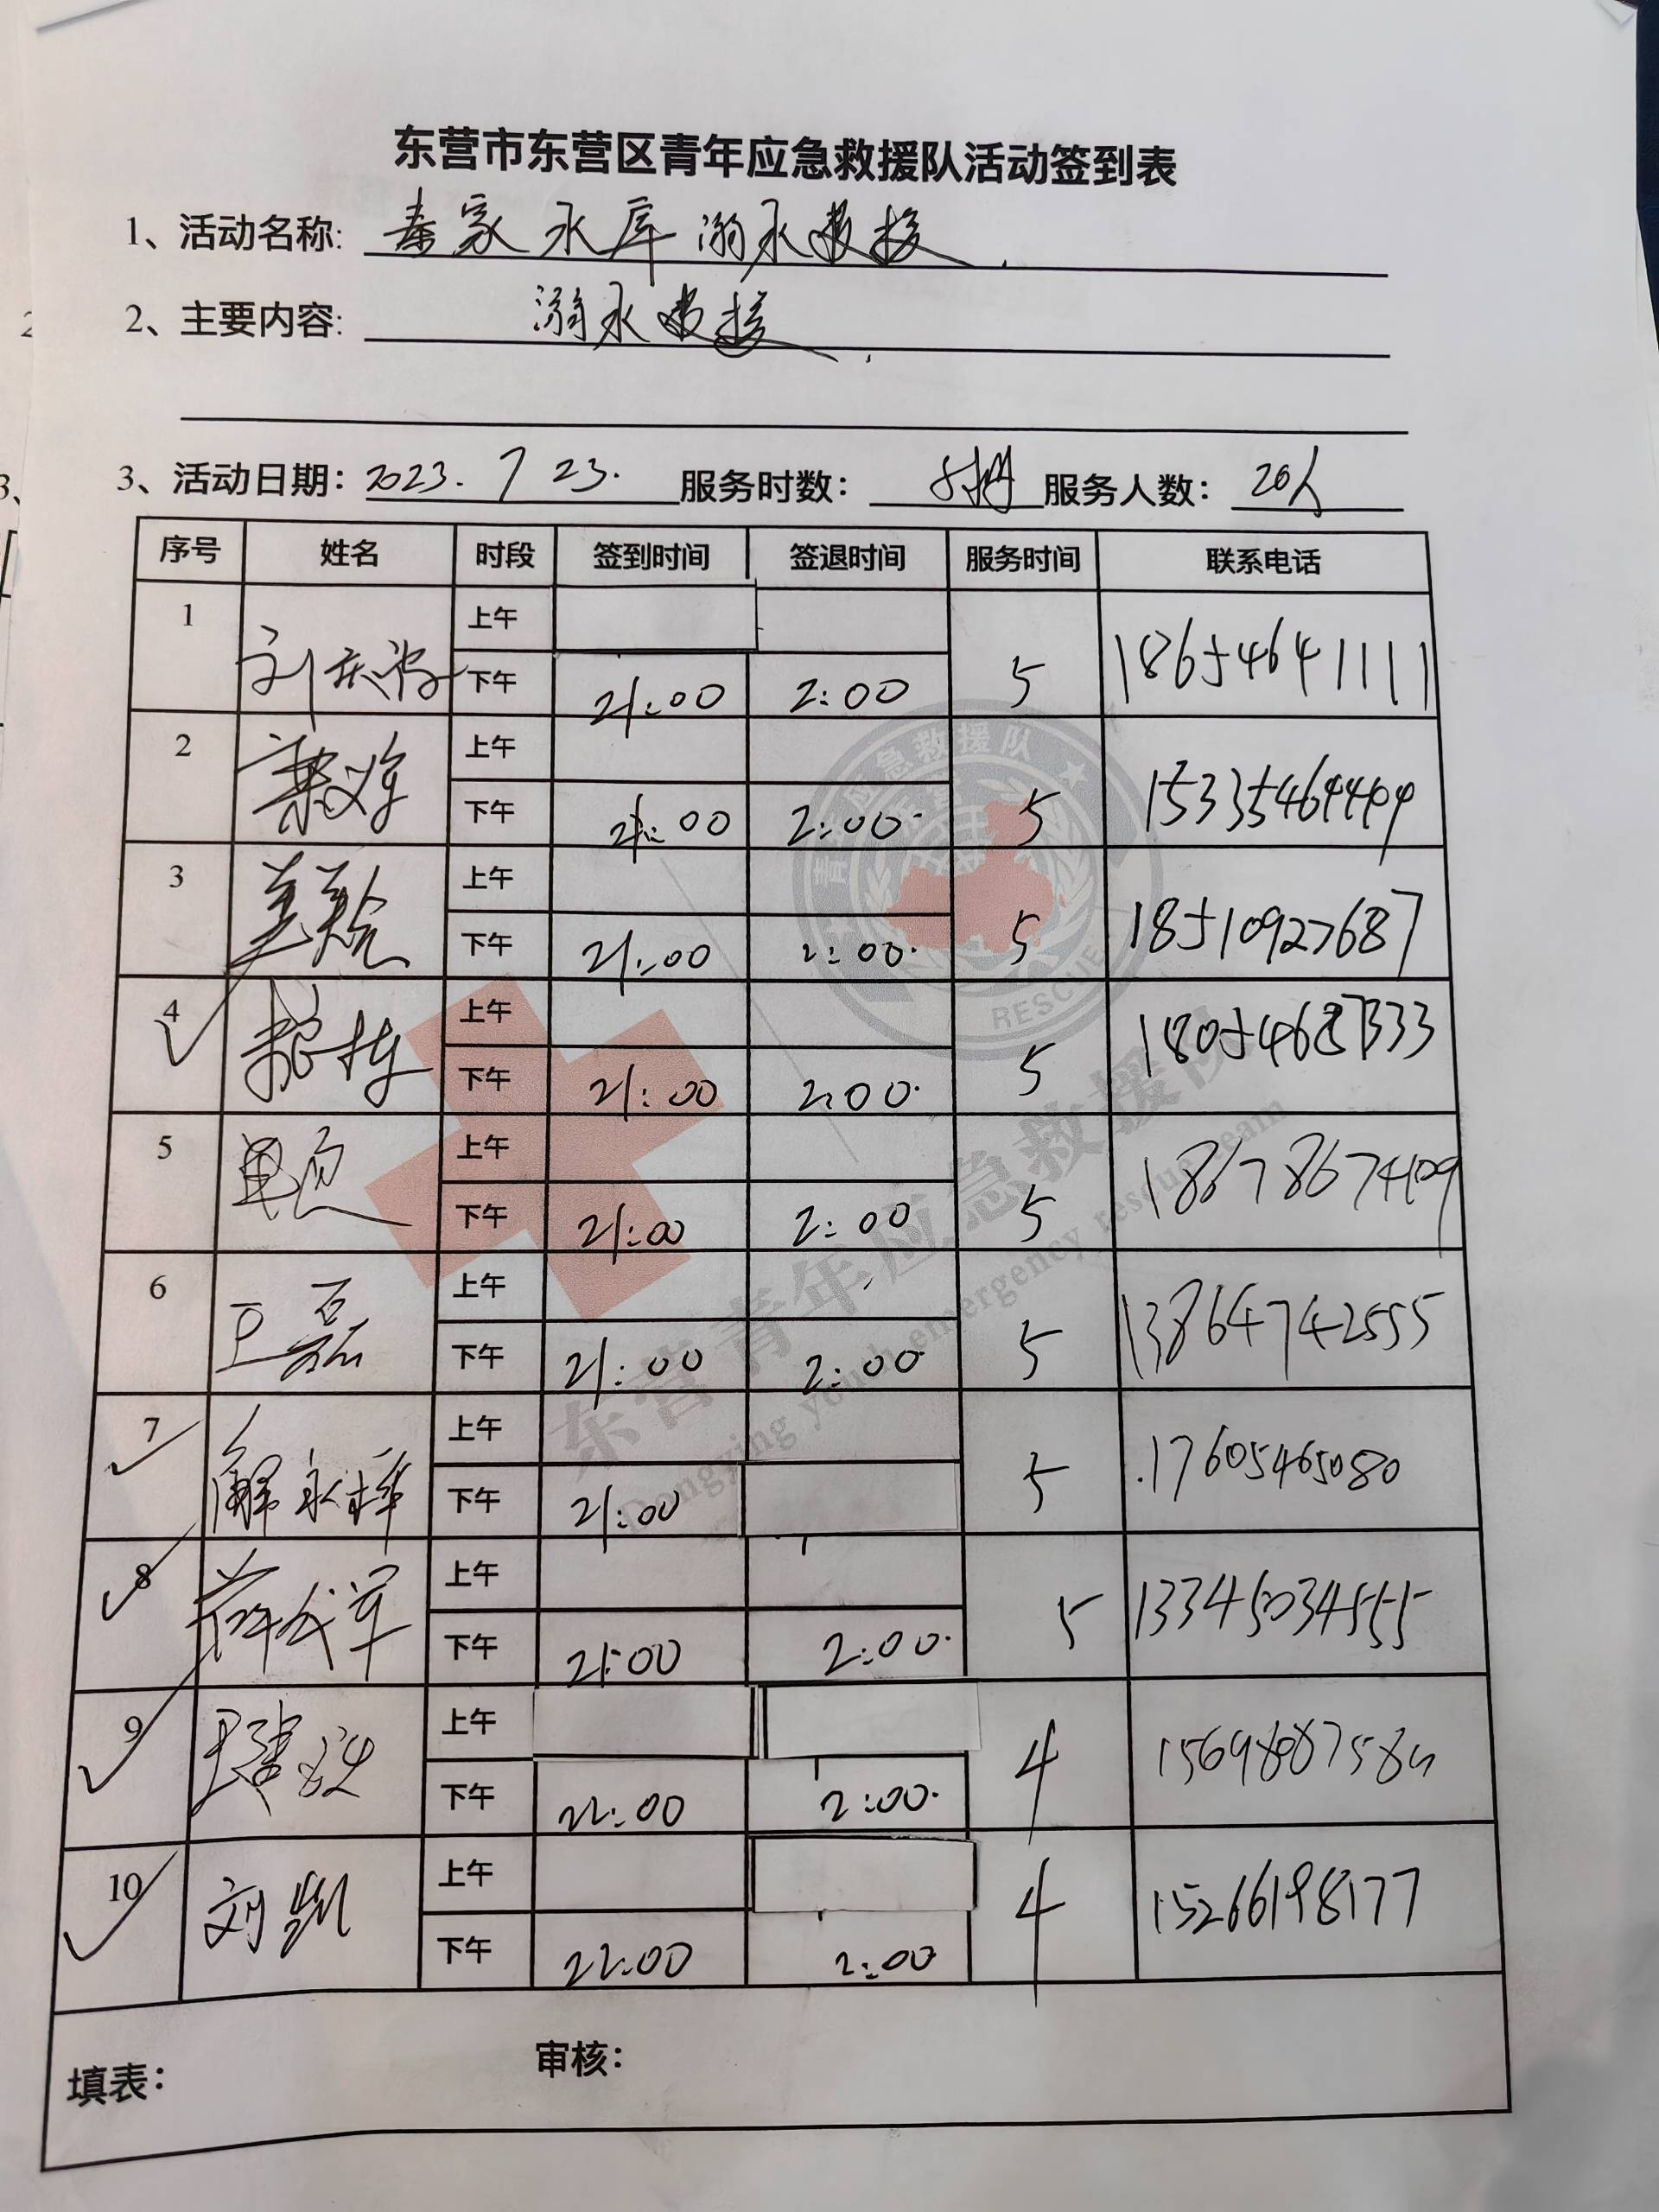 东营市东营区青年应急救援队活动签到表
1、活动名称: 秦家水库溺水救援.
2、主要内容: 溺水救援.
3、活动日期: 2023. 7 23. 服务时数: 5 服务人数: 20人
序号 姓名 时段 签到时间 签退时间 服务时间 联系电话
1 刘 上午
下午 21:00 2:00 5 18654641111
2 上午
下午 21:00 2:00. 5
3 上午
下午 21:00 2:00. 5 18510927687
4 上午
下午 21:00 2:00. 5
5 上午
下午 21:00 2:00 5
6 王磊 上午
下午 21:00 2:00 5 13864742555
7 解永梓 上午
下午 21:00 5 17605465080
8 薛成军 上午
下午 21:00 2:00. 5 13345034555
9 上午
下午 22:00 2:00. 4
10 刘凯 上午
下午 22:00 2:00 4 15266198177
填表: 审核:
青年应急救援队
RESCUE
东营青年应急救援队
Dongying youth emergency rescue team